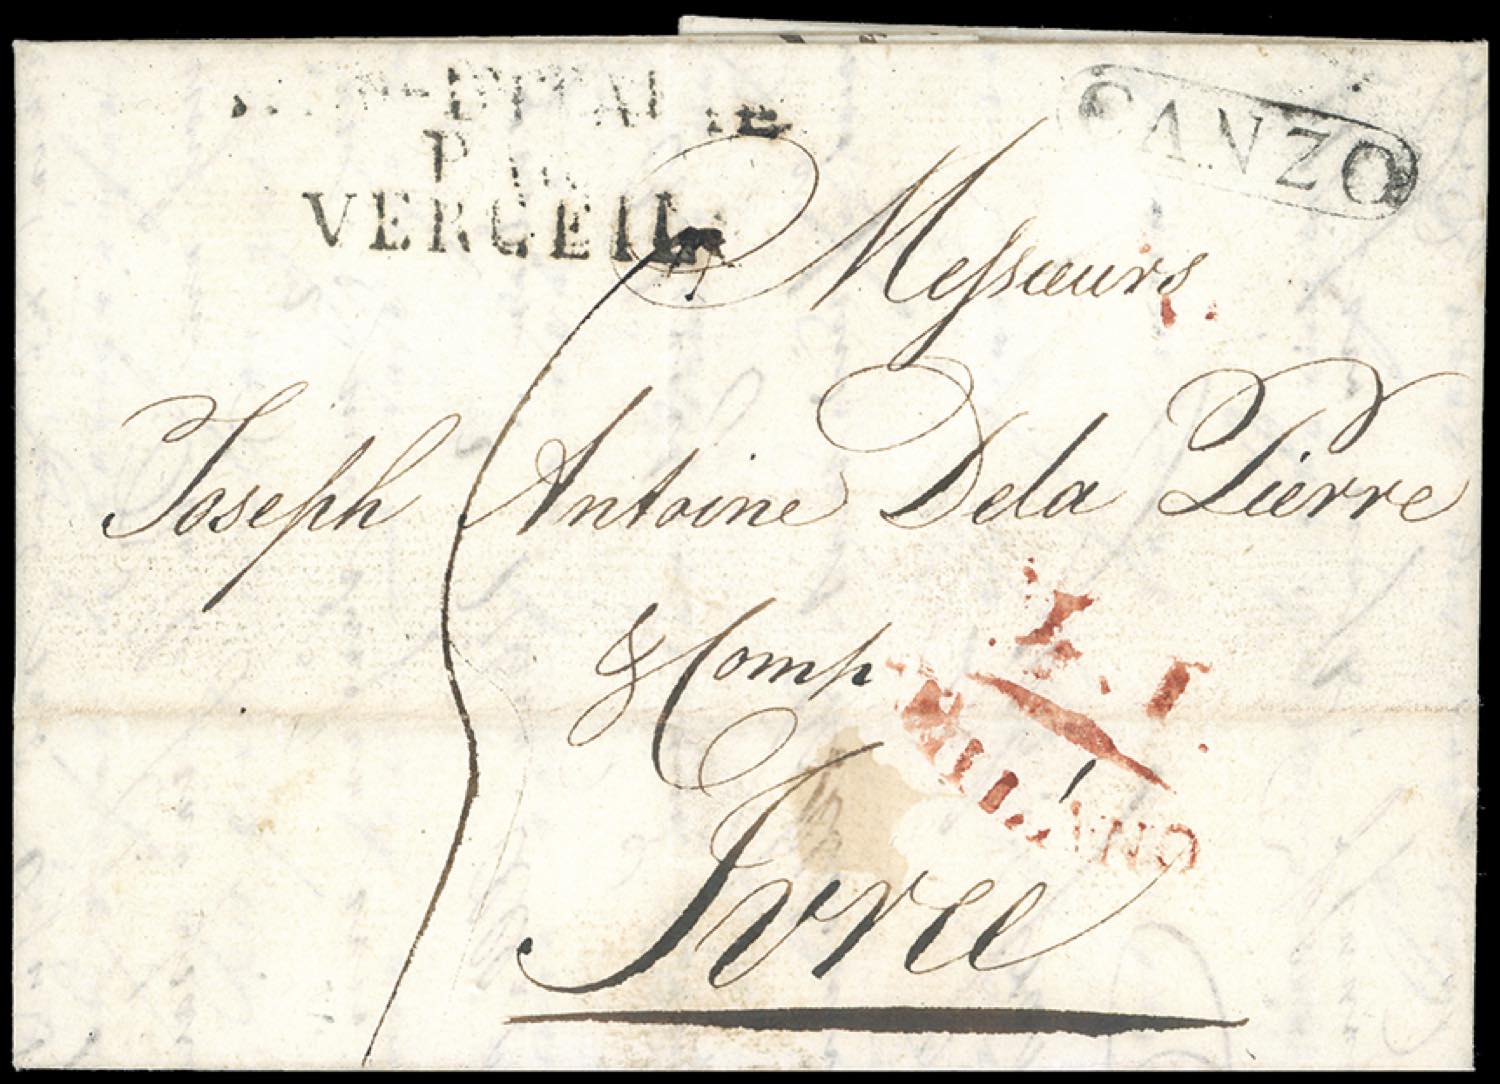 D'ITALIE
PAR
VERCEIL
CANZO
Messœurs
Joseph Antoine Dela Pierre
& Comp
Ivree
L.I.
MILANO